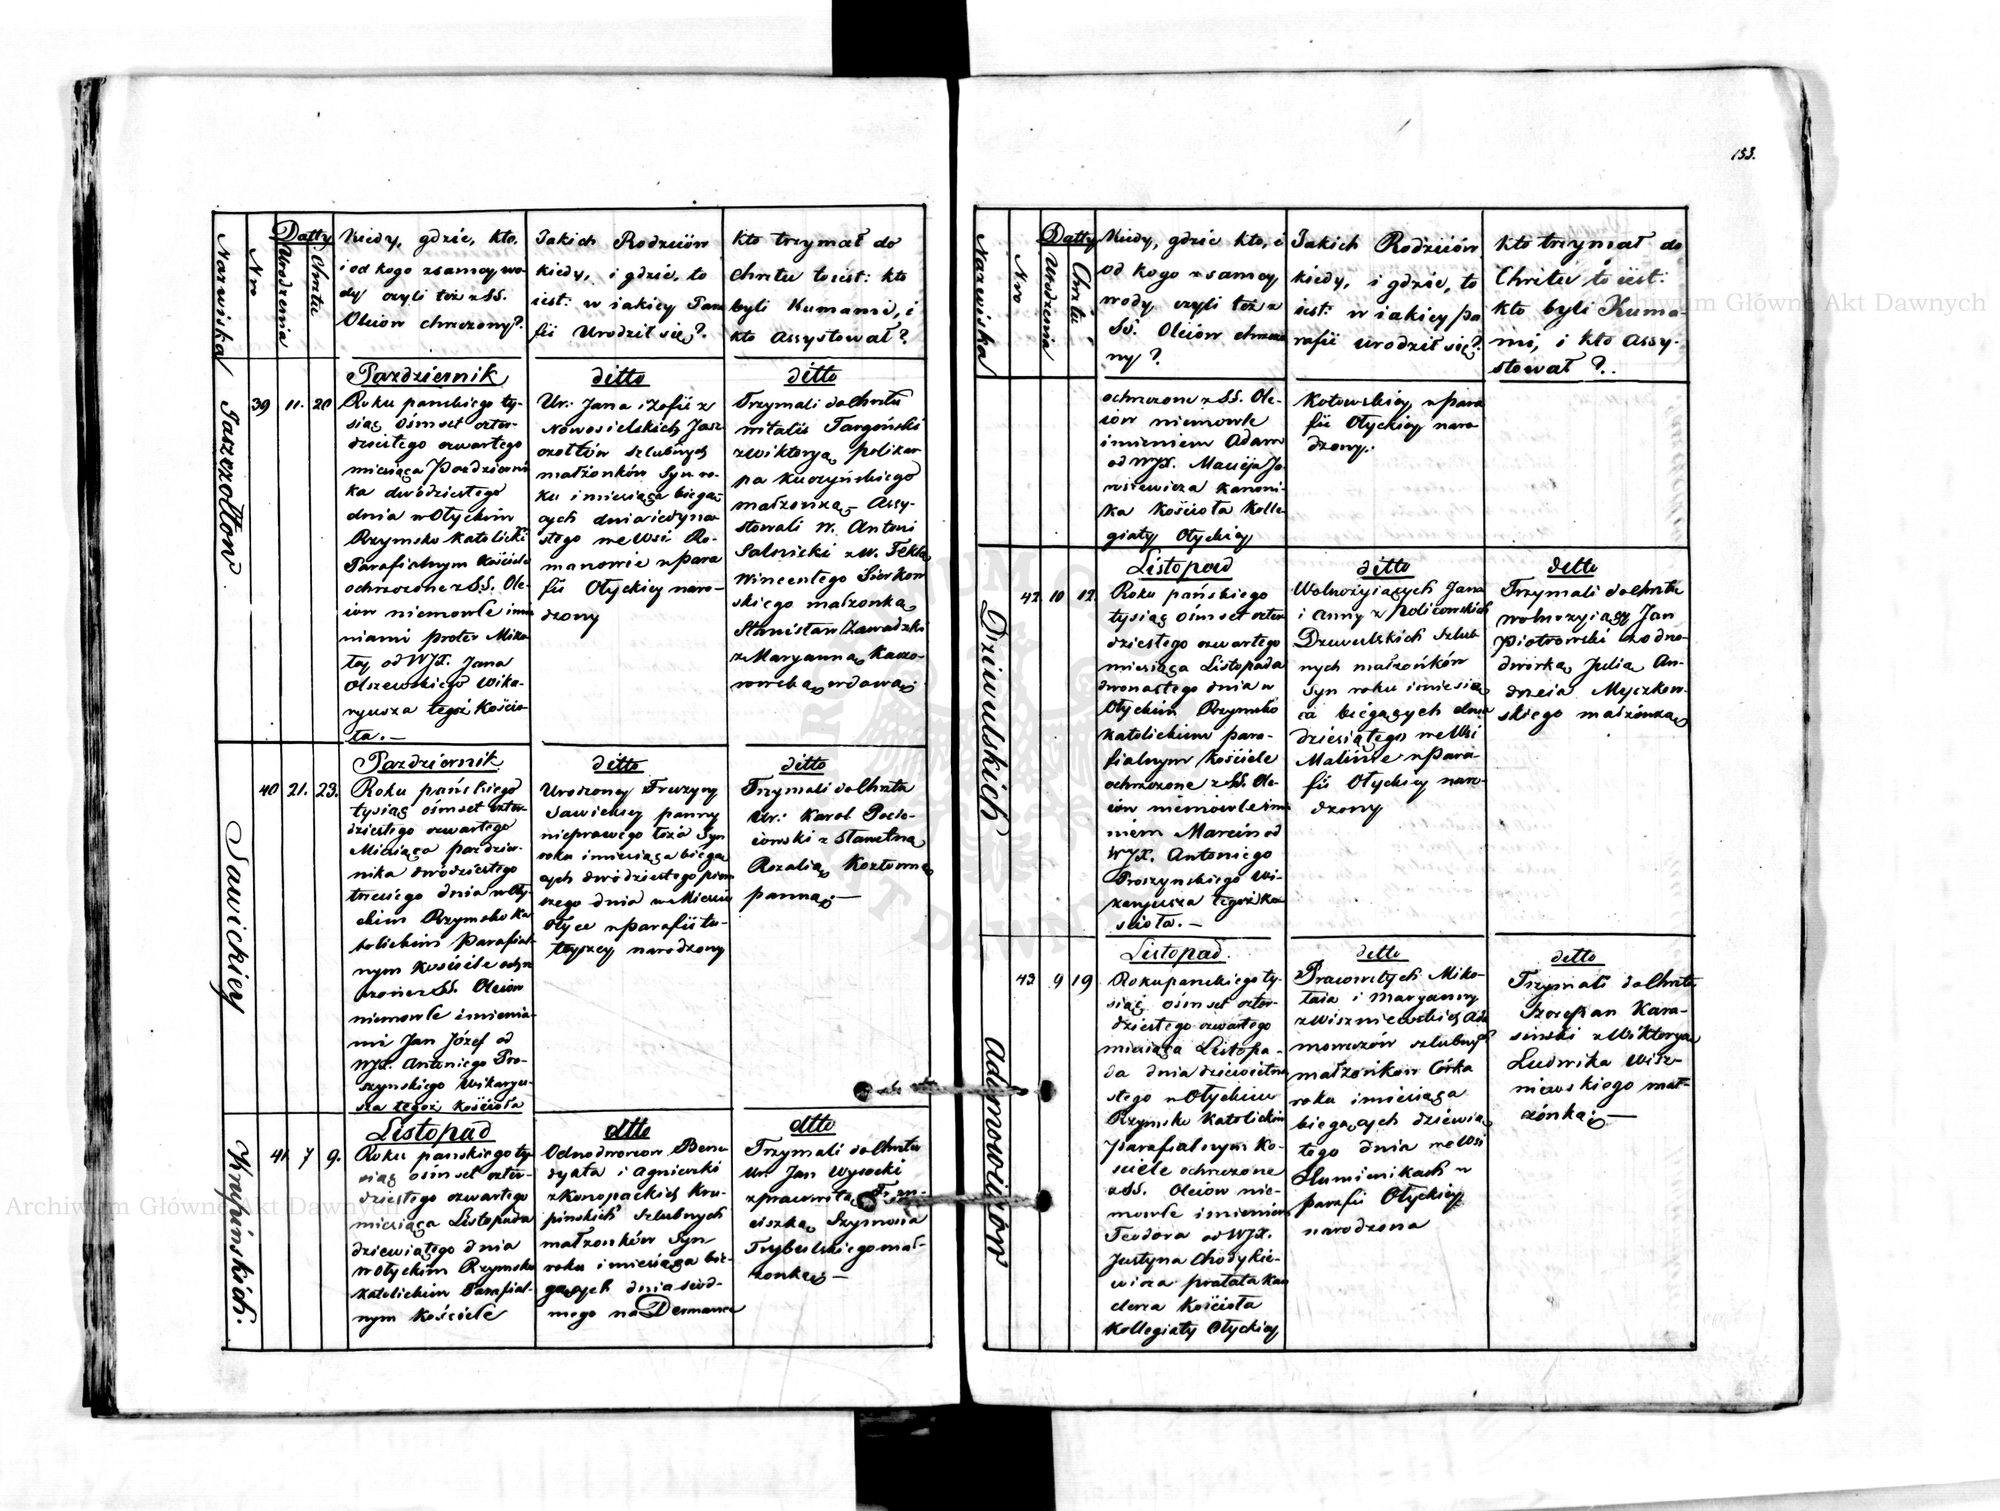 153.
Nazwiska
Nro
Datty
Urodzenia
Chrztu
Kiedy, gdzie, kto,
i od kogo z samey wo-
dy czyli też z SS.
Oleiow chrzczony?
Jakich Rodziców
kiedy, i gdzie, to
iest: w iakiey Para
fii Urodził się?
Kto trzymał do
Chrztu to iest: kto
byli Kumami, i
kto Assystował?
Jaszczołtow
39
11.
20
Pazdziernik
Roku panskiego ty-
siąc ośmset czter-
dziestego czwartego
miesiąca Pazdzierni
ka dwódziestego
dnia w Ołyckim
Rzymsko Katolicki
Parafialnym Kościele
ochrzczone z SS. Ole-
iow niemowle imio
niami proter Miko
łay od WJX. Jana
Olszewskiego Wika-
ryusza tegoż Kościo-
ła.—
ditto
Ur: Jana i Zofii z
Nowosielskich Jasz
czołtów szlubnych
małżonków Syn ro-
ku i miesiąca biegą-
cych dnia iedyna-
stego we Wsi Ro-
manowie w para
fii Ołyckiey naro-
dzony
ditto
Trzymali do Chrztu
Witalis Targoński
z Wiktoryą Polikar
pa Kuczyńskiego
małżonką Assy-
stowali W. Antoni
Salnicki z W. Teklą
Wincentego Sierkow
skiego małżonką
Stanisław Zawadzki
z Maryanną Kaczo-
rowską wdową.
Sawickiey
40
21.
23.
Pazdziernik
Roku pańskiego
tysiąc ośmset czter-
dziestego czwartego
Miesiąca pazdzier-
nika dwódziestego
trzeciego dnia w Oły-
ckim Rzymsko Ka
tolickim Parafial-
nym Kościele ochrz
czone z SS. Oleiow
niemowle imionia-
mi Jan Józef od
WJX. Antoniego Pro-
szynskiego Wikaryu-
sza tegoż Kościoła
ditto
Urodzoney Fruzyny
Sawickiey panny
nieprawego łoża Syn
roku i miesiąca biegą
cych dwódziestego pierw
szego dnia w Miescie
Ołyce w parafii tu-
teyszey narodzony
ditto
Trzymali do Chrztu
Ur: Karol Pocie-
iowski z Sławetną
Rozalią Kozłowną
panną.—
Krupińskich.
41.
7
9.
Listopad
Roku panskiego ty-
siąc ośmset czter-
dziestego czwartego
miesiąca Listopada
dziewiątego dnia
w Ołyckim Rzymsko
katolickim Parafial-
nym Kościele
ditto
Odnodworcow Bene
dykta i Agnieszki
z Konopackich Kru-
pińskich szlubnych
małżonków Syn
roku i miesiąca bie-
gących dnia siód-
mego na Dermance
ditto
Trzymali do Chrztu
Ur. Jan Wysocki
z pracowitą Fran-
ciszką Szymona
Trybulskiego mał-
żonką.—
Nazwiska
Nro
Datty
Urodzenia
Chrztu
Kiedy, gdzie kto, i
od kogo z samey
wody czyli też z
SS. Oleiów chrzczo
ny?
Jakich Rodziców
kiedy, i gdzie, to
iest: w iakiey pa
rafii urodził się?
Kto trzymał do
Chrztu to iest:
kto byli Kuma-
mi, i kto Assy-
stował?.
ochrzczone z SS. Ole-
iów niemowle
imieniem Adam
od WJX. Macieja Ja-
rosiewicza Kanoni-
ka Kościoła Kolle-
giaty Ołyckiey
Kotowskiey w para
fii Ołyckiey naro-
dzony.
Dziewulskich
42.
10
12.
Listopad
Roku pańskiego
tysiąc ośmset czter
dziestego czwartego
miesiąca Listopada
dwonastego dnia w
Ołyckim Rzymsko
katolickim para-
fialnym Kościele
ochrzczone z SS. Ole-
iów niemowle imie
niem Marcin od
WJX. Antoniego
Proszynskiego Wi-
karyusza tegoż Ko-
ścioła.—
ditto
Wolnożyiących Jana
i Anny z Policowskich
Dzewulskich szlub-
nych małżonków
Syn roku i miesią
ca biegących dnia
dziesiątego we Wsi
Malinie w para-
fii Ołyckiey naro-
dzony
ditto
Trzymali do Chrztu
wolnożyiący Jan
Piotrowski z odno-
dwórką Julią An-
drzeia Myczkow-
skiego małżonką
Adamowiczów
43.
9
19
Listopad.
Roku panskiego ty-
siąc ośmset czter-
dziestego czwartego
miesiąca Listopa-
da dnia dziewietna
stego w Ołyckim
Rzymsko Katolickim
Parafialnym Ko-
sciele ochrzczone
z SS. Oleiów nie-
mowle imieniem
Teodora od WJX.
Justyna Chodykie-
wicza prałata Kan
clerza Kościoła
Kollegiaty Ołyckiey
ditto
Pracowitych Miko-
łaia i Maryanny
z Wiszniewskich Ada
mowiczów szlubnych
małżonków Córka
roku i miesiąca
biegących dziewią-
tego dnia we Wsi
Humienikach w
parafii Ołyckiey
narodzona
ditto
Trzymali do Chrztu
Szczepan Kara-
sinski z Wiktoryą
Ludwika Wisz-
niewskiego mał-
żonką.—
Archiwum Główne Akt Dawnych
Archiwum Główne Akt Dawnych